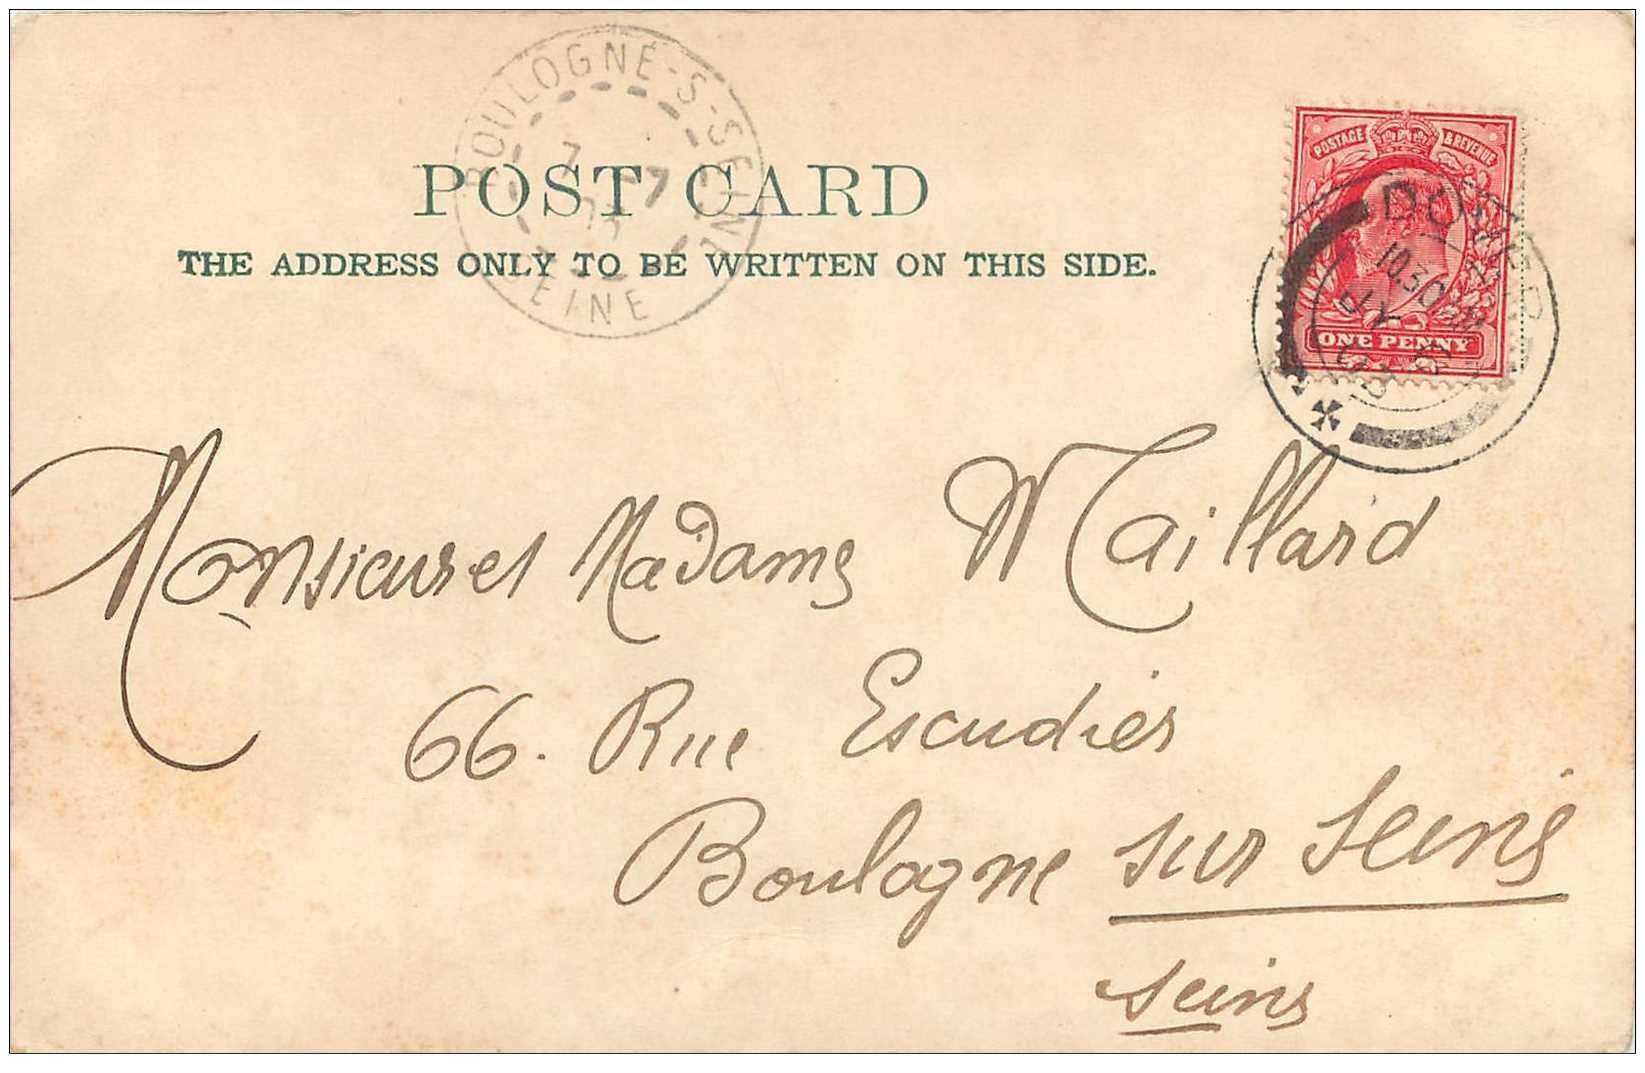 BOULOGNE-S-SEINE
7 7
03
SEINE
POST CARD
THE ADDRESS ONLY TO BE WRITTEN ON THIS SIDE.
POSTAGE & REVENUE
ONE PENNY
DOVER
10.30 PM
JY 6
03
Monsieur et Madame Maillard
66. Rue Escudier
Boulogne sur Seine
Seine